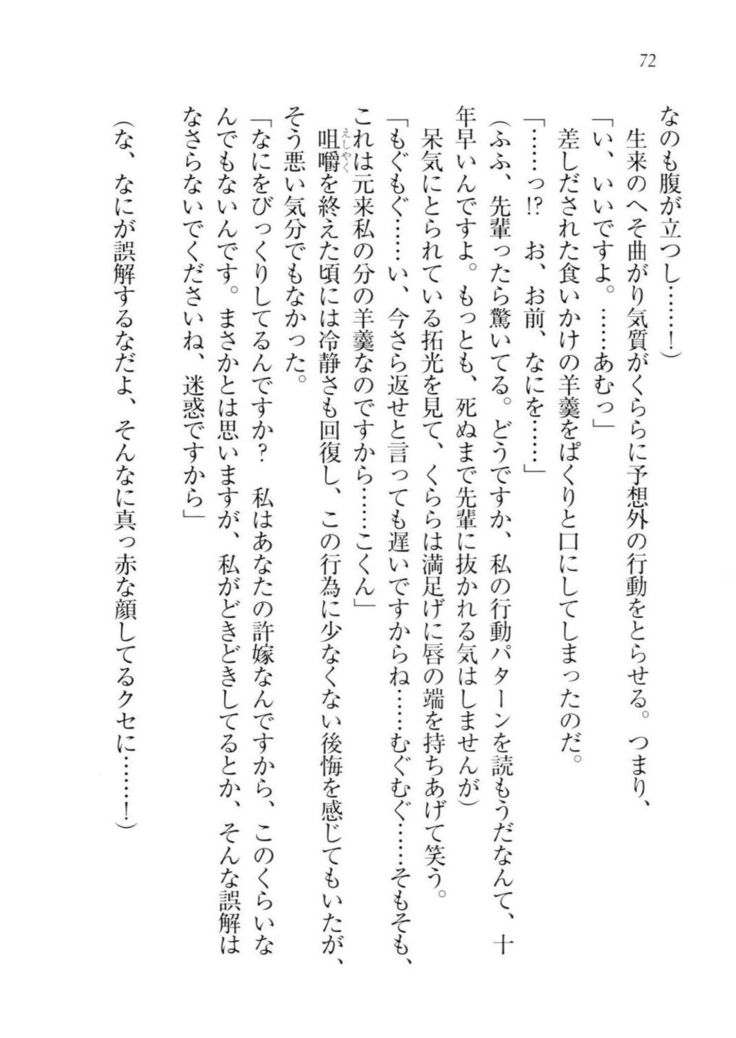 72
なのも腹が立つし……！）
　生来のへそ曲がり気質がくららに予想外の行動をとらせる。つまり、
「い、いいですよ。……あむっ」
　差しだされた食いかけの羊羹をぱくりと口にしてしまったのだ。
「……っ!?　お、お前、なにを……」
（ふふ、先輩ったら驚いてる。どうですか、私の行動パターンを読もうだなんて、十
年早いんですよ。もっとも、死ぬまで先輩に抜かれる気はしませんが）
　呆気にとられている拓光を見て、くららは満足げに唇の端を持ちあげて笑う。
「もぐもぐ……い、今さら返せと言っても遅いですからね……むぐむぐ……そもそも、
これは元来私の分の羊羹なのですから……こくん」
　咀嚼を終えた頃には冷静さも回復し、この行為に少なくない後悔を感じてもいたが、
えしやく
そう悪い気分でもなかった。
「なにをびっくりしてるんですか？　私はあなたの許嫁なんですから、このくらいな
んでもないんです。まさかとは思いますが、私がどきどきしてるとか、そんな誤解は
なさらないでくださいね、迷惑ですから」
（な、なにが誤解するなだよ、そんなに真っ赤な顔してるクセに……！）